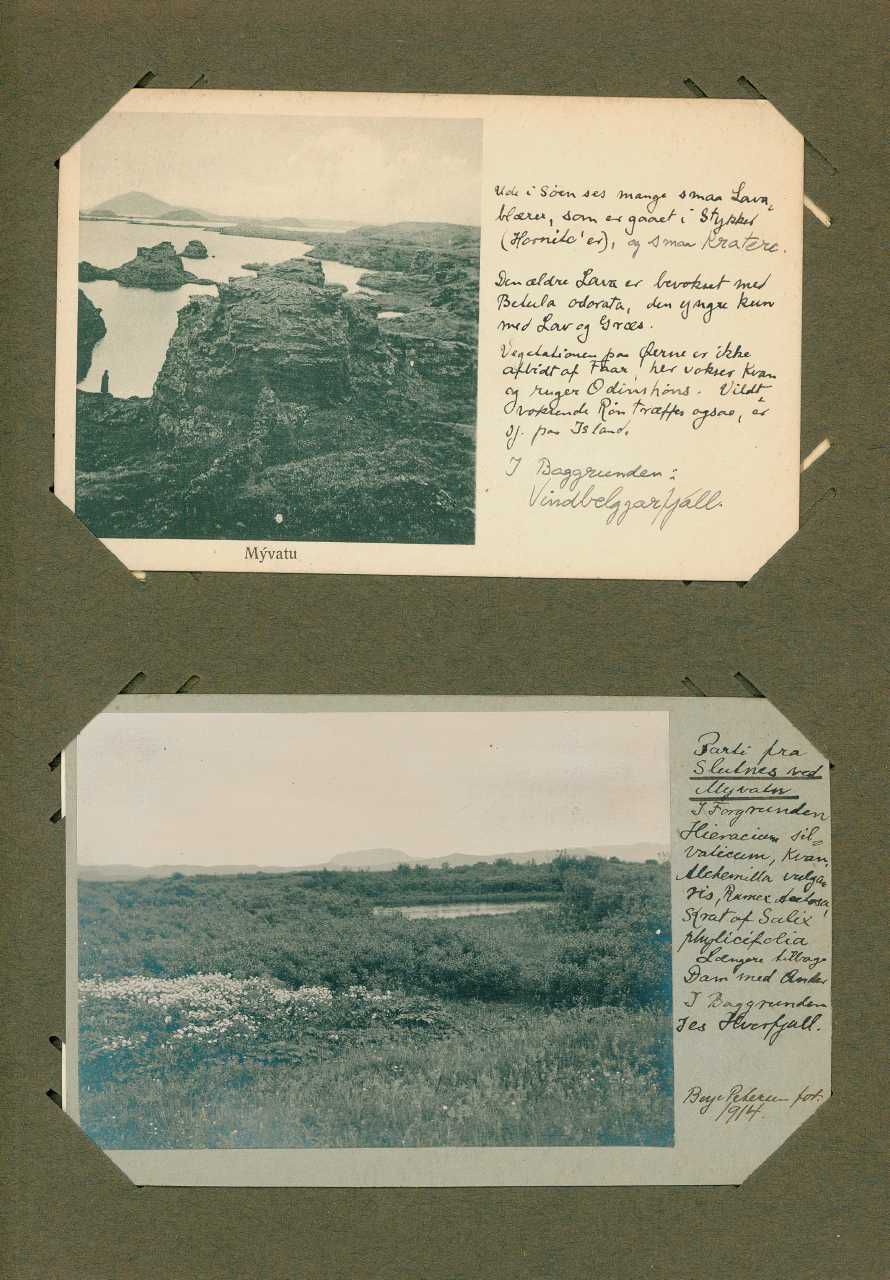 Ude i Søen ses mange smaa Lava=
blærer, som er gaaet i Stykker
(Hornito'er), og smaa Kratere.
Den ældre Lava er bevokset med
Betula odorata, den yngre kun
med Lav og Græs.
Vegetationen paa Øerne er ikke
afbidt af Faar, her vokser Kvan
og ruger Odinshøns. Vildt=
voksende Røn træffes ogsaa, er
sj. paa Island.
I Baggrunden:
Vindbelggarfjall.
Mývatu
Parti fra
Slutnes ved
Myvatn
I Forgrunden
Hieracium sil=
vaticum, Kvan,
Alchemilla vulga=
ris, Rumex Acetosa,
Krat af Salix
phylicifolia
Længere tilbage
Dam med Ænder
I Baggrunden
ses Hverfjall.
Boye Petersen fot.
1914.